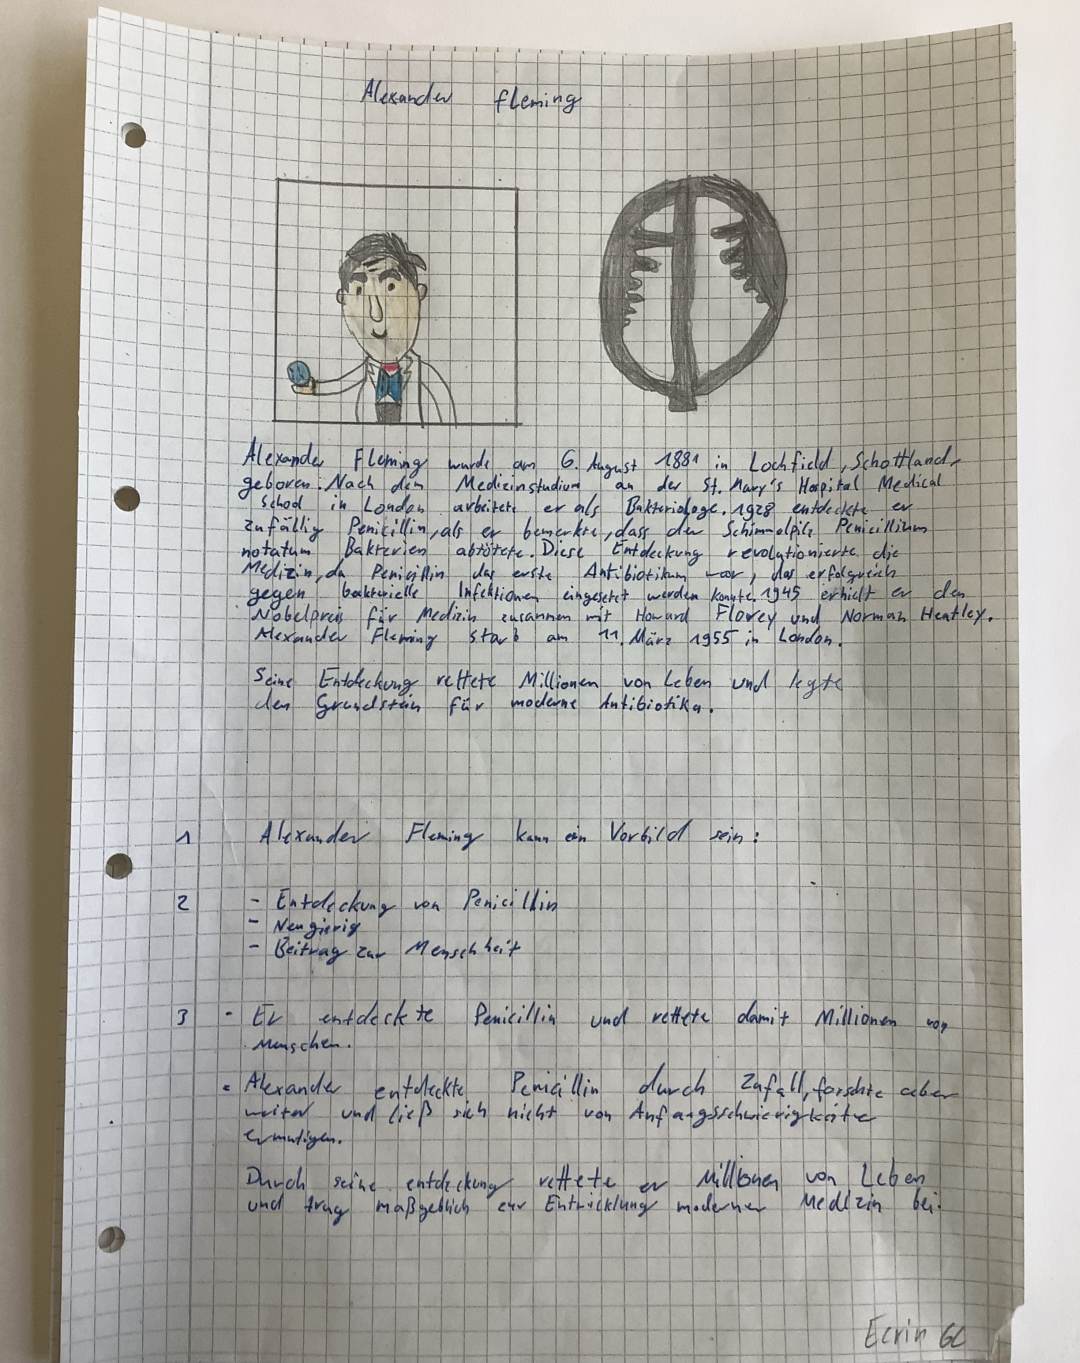 Alexander Fleming
Alexander Fleming wurde am 6. August 1881 in Lochfield, Schottland,
geboren. Nach dem Medizinstudium an der St. Mary's Hospital Medical
School in London arbeitete er als Bakteriologe. 1928 entdeckte er
zufällig Penicillin, als er bemerkte, dass der Schimmelpilz Penicillium
notatum Bakterien abtötete. Diese Entdeckung revolutionierte die
Medizin, da Penicillin das erste Antibiotikum war, das erfolgreich
gegen bakterielle Infektionen eingesetzt werden konnte. 1945 erhielt er den
Nobelpreis für Medizin zusammen mit Howard Florey und Norman Heatley.
Alexander Fleming starb am 11. März 1955 in London.
Seine Entdeckung rettete Millionen von Leben und legte
den Grundstein für moderne Antibiotika.
1 Alexander Fleming kann ein Vorbild sein:
2 - Entdeckung von Penicillin
- Neugierig
- Beitrag zur Menschheit
3 - Er entdeckte Penicillin und rettete damit Millionen von
Menschen.
• Alexander entdeckte Penicillin durch Zufall, forschte aber
weiter und ließ sich nicht von Anfangsschwierigkeite
ermutigen.
Durch seine entdeckung rettete er Millionen von Leben
und trug maßgeblich zur Entwicklung moderner Medizin bei.
Ecrin 6c